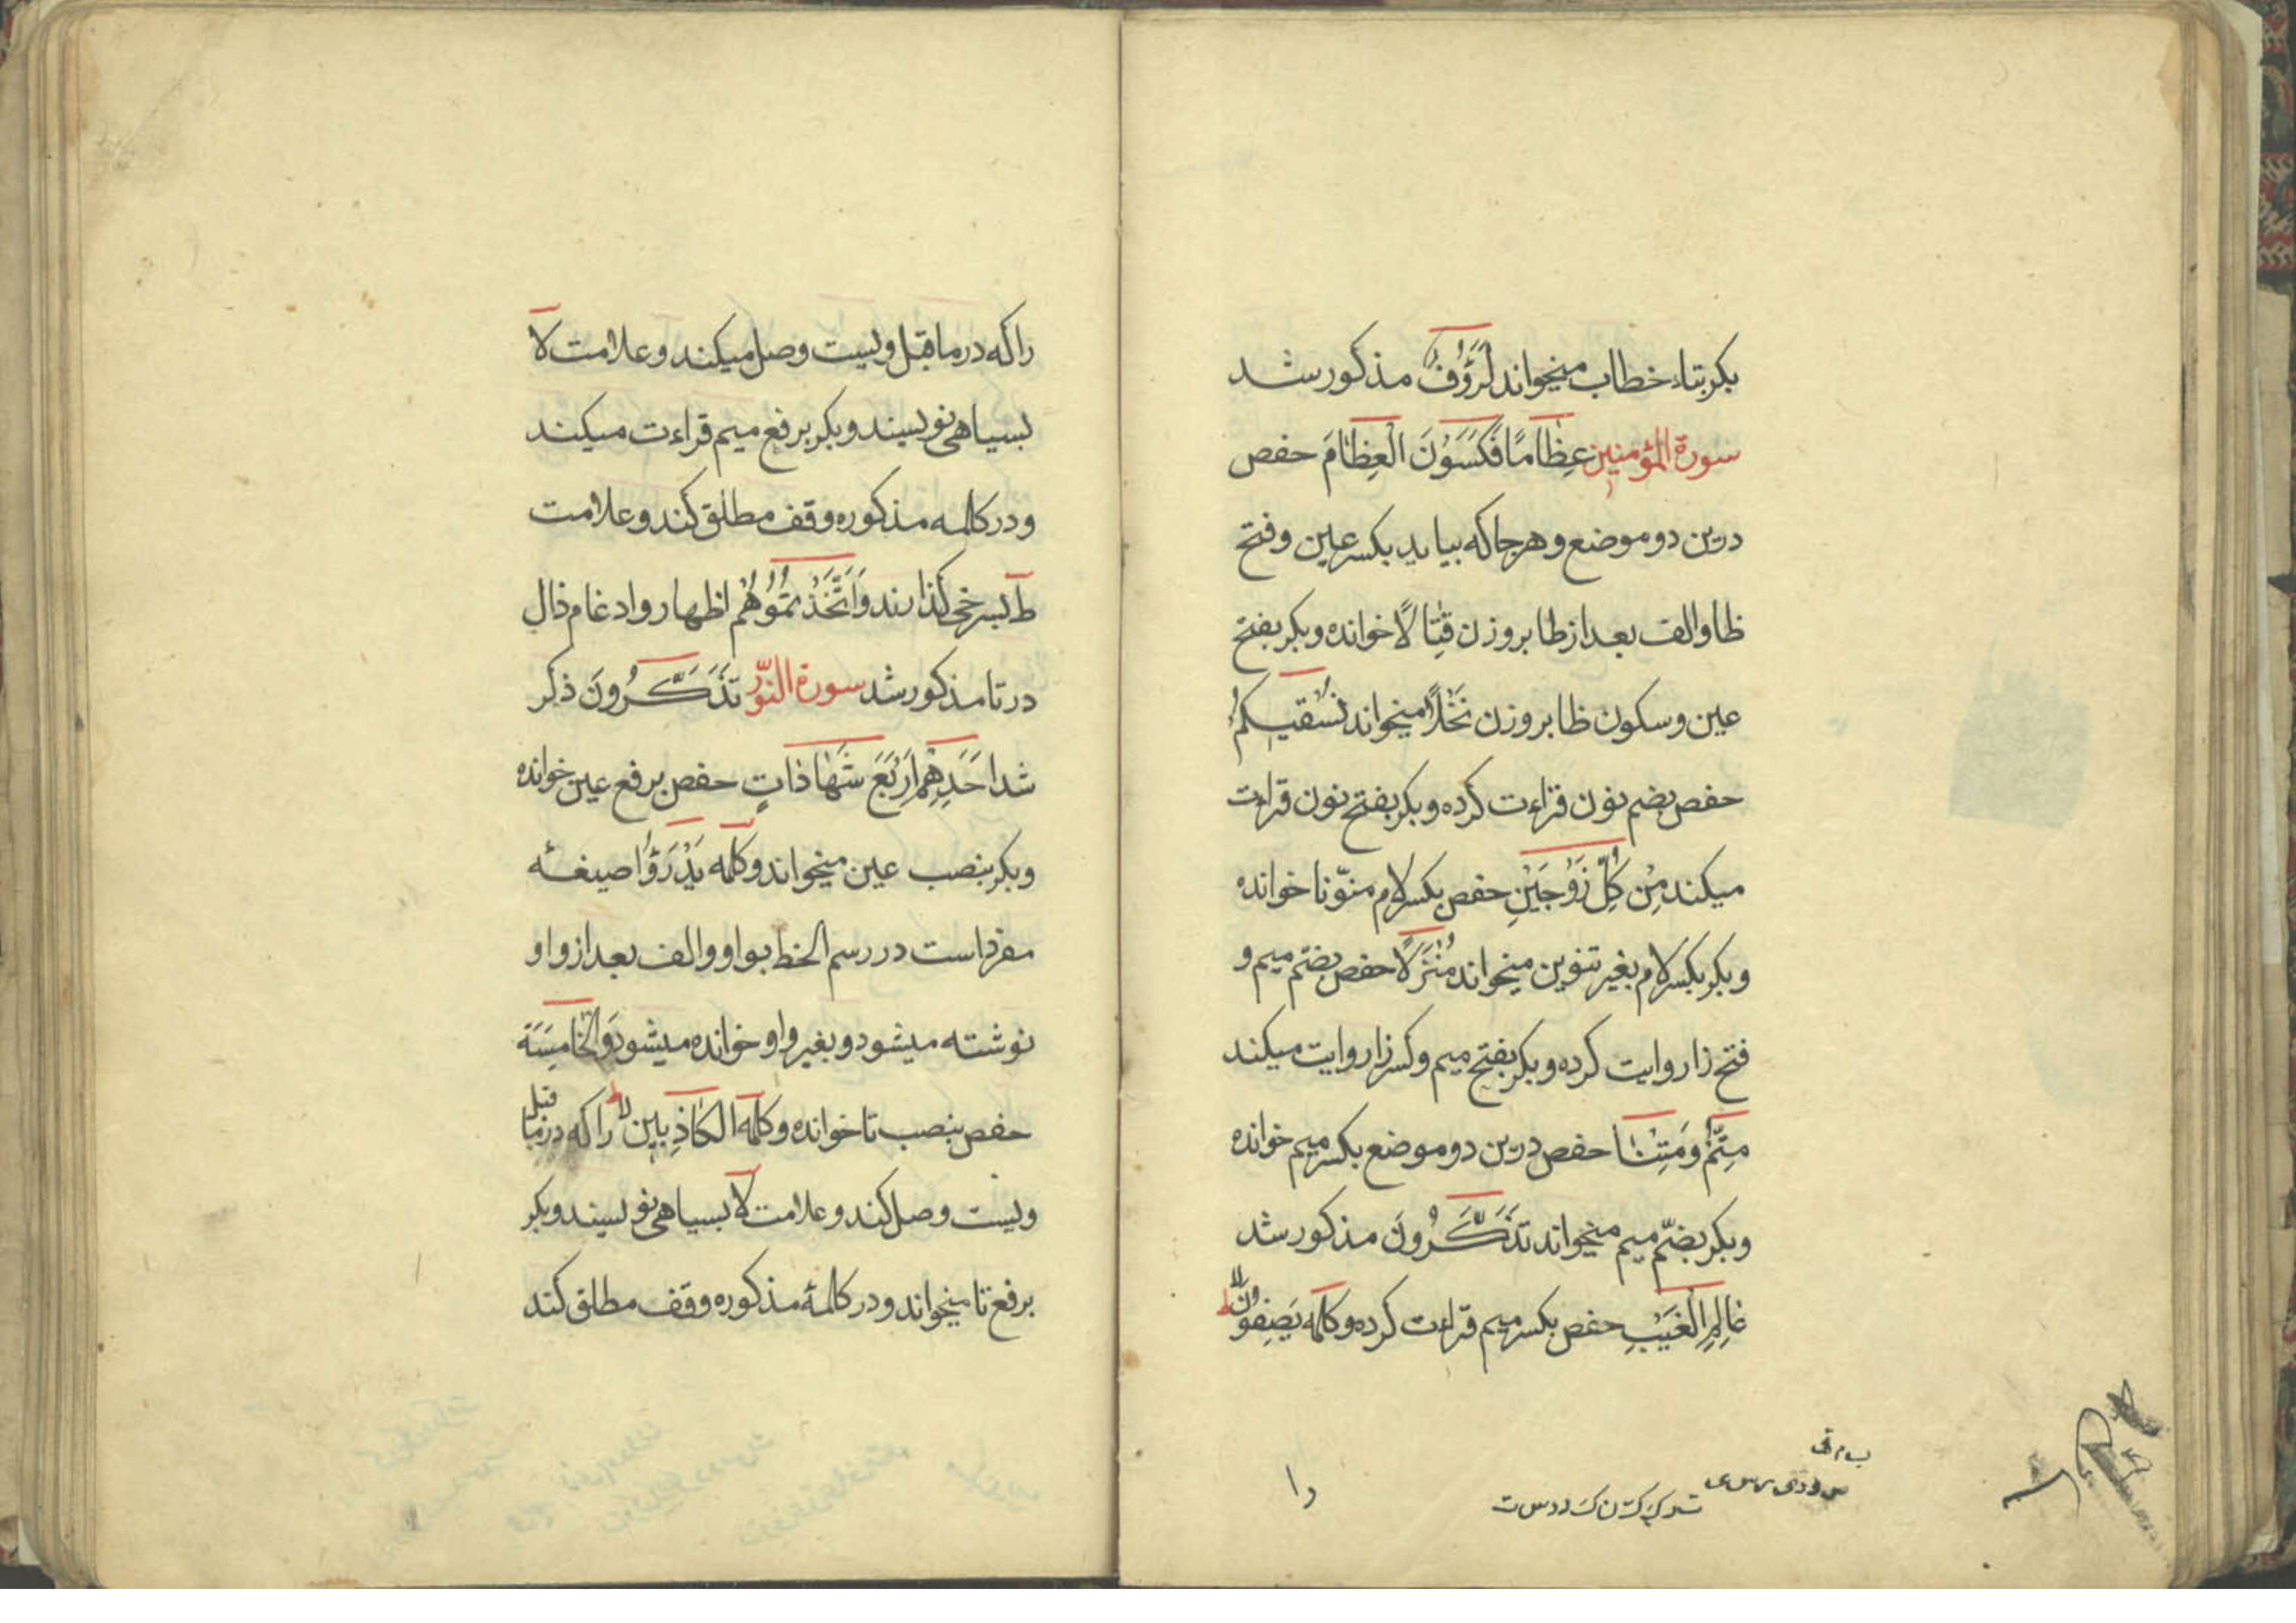 بکر بتاء خطاب میخواند لَرَؤُفٌ مذکور شد
سورة المؤمنین عِظَامًا فَکَسَوْنَ الْعِظَامَ حفص
درین دو موضع و هر جا که بیاید بکسر عین و فتح
ظا و الف بعد از ظا بر وزن قِتَالًا خوانده و بکر بفتح
عین و سکون ظا بر وزن نَخْلًا میخواند نُسْقِیکُمْ
حفص بضم نون قراءت کرده و بکر بفتح نون قراءت
میکند مِنْ کُلٍّ زَوْجَیْنِ حفص بکسر لام منوّنا خوانده
و بکر بکسر لام بغیر تنوین میخواند مُنْزَلًا حفص بضمّ میم و
فتح زا روایت کرده و بکر بفتح میم و کسر زا روایت میکند
مِتُّمْ وَمِتْنَا حفص درین دو موضع بکسر میم خوانده
و بکر بضمّ میم میخواند تَذَکَّرُونَ مذکور شد
عَالِمِ الْغَیْبِ حفص بکسر میم قراءت کرده و کلمه یَصِفُونَ لا
را
را که در ما قبل ویست وصل میکند و علامت لا
بسیاهی نویسند و بکر برفع میم قراءت میکند
و در کلمه مذکوره وقف مطلق کند و علامت
ط بسرخی گذارند وَاتَّخَذْتُمُوهُمْ اظهار و ادغام ذال
در تا مذکور شد سورة النّور تَذَکَّرُونَ ذکر
شد اَحَدِهِمْ اَرْبَعَ شَهَادَاتٍ حفص برفع عین خوانده
و بکر بنصب عین میخواند و کلمه یَدْرَؤُا صیغهٔ
مفرد است در رسم الخط بواو و الف بعد از واو
نوشته میشود و بغیر واو خوانده میشود وَالْخَامِسَةَ
حفص بنصب تا خوانده و کلمه الکَاذِبِینَ لا را که در ما قبل
ویست وصل کند و علامت لا بسیاهی نویسند و بکر
برفع تا میخواند و در کلمهٔ مذکوره وقف مطلق کند